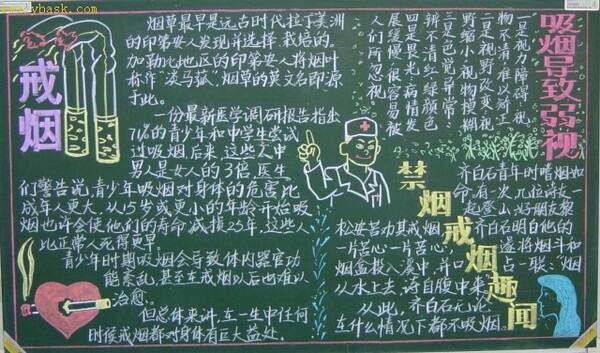 ybask.com
戒烟
烟草最早是远古时代拉丁美洲
的印第安人发现并选择、栽培的。
加勒比地区的印第安人将烟叶
称作“淡马菰”，烟草的英文名即源
于此。
一份最新医学调研报告指出
71%的青少年和中学生尝试
过吸烟，后来，这些人中
男人是女人的3倍，医生
们警告说，青少年吸烟对身体的危害比
成年人更大，从15岁或更小的年龄开始吸
烟也许会使他们的寿命减损25年，这些人
比正常人死得更早。
青少年时期吸烟会导致体内器官功
能紊乱，甚至在戒烟以后也难以
治愈。
但总体来讲，在一生中任何
时候戒烟都对身体有巨大益处。
吸烟导致弱视
一是视力障碍，视
物不清难以矫正
二是视野改变，视
野缩小，视物模糊
三是色觉异常，
辨不清红绿颜色
四是畏光，病情发
展缓慢，很容易被
人们所忽视
禁烟戒烟趣闻
齐白石青年时嗜烟如
命，有一次，几位诗友一
起登山，好朋友黎
松安苦劝其戒烟，齐白石明白他的
一片苦心，遂将烟斗和
烟盒投入溪中，并口占一联：“烟
从水上去，诗自腹中来
从此，齐白石无论
在什么情况下都不吸烟。